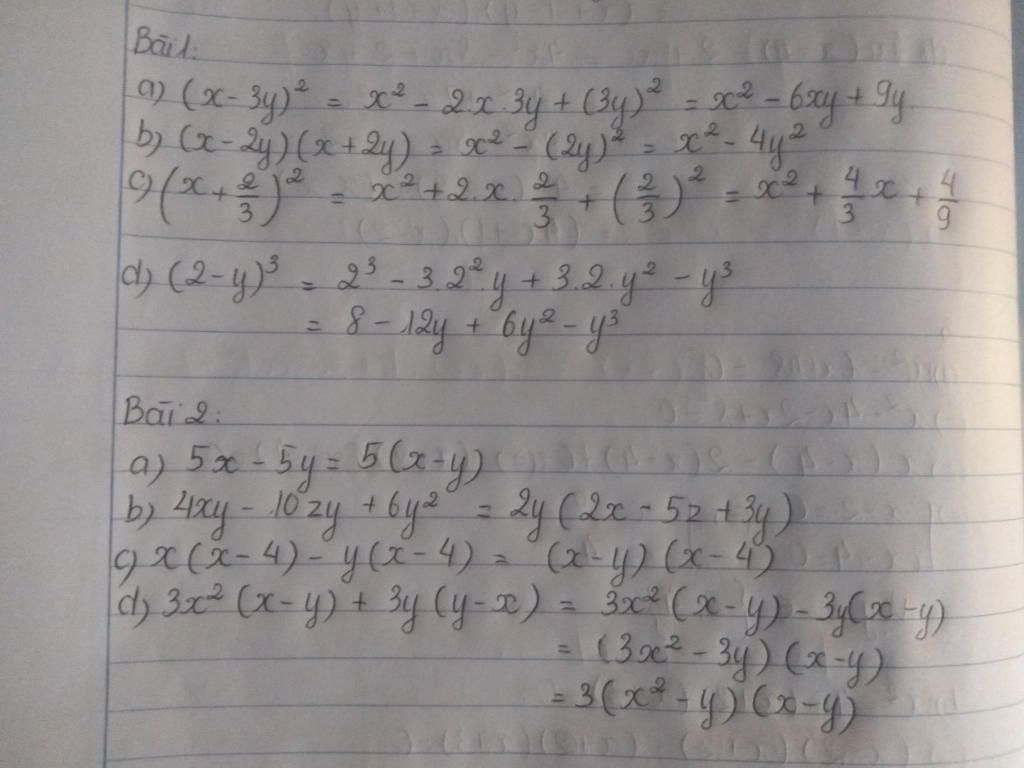 Bài 1:
a) (x - 3y)² = x² - 2.x.3y + (3y)² = x² - 6xy + 9y.
b) (x - 2y)(x + 2y) = x² - (2y)² = x² - 4y²
c) (x + 2/3)² = x² + 2.x.2/3 + (2/3)² = x² + 4/3 x + 4/9
d) (2 - y)³ = 2³ - 3.2².y + 3.2.y² - y³
= 8 - 12y + 6y² - y³
Bài 2:
a) 5x - 5y = 5(x - y)
b) 4xy - 10zy + 6y² = 2y(2x - 5z + 3y)
c) x(x - 4) - y(x - 4) = (x - y)(x - 4)
d) 3x²(x - y) + 3y(y - x) = 3x²(x - y) - 3y(x - y)
= (3x² - 3y)(x - y)
= 3(x² - y)(x - y)